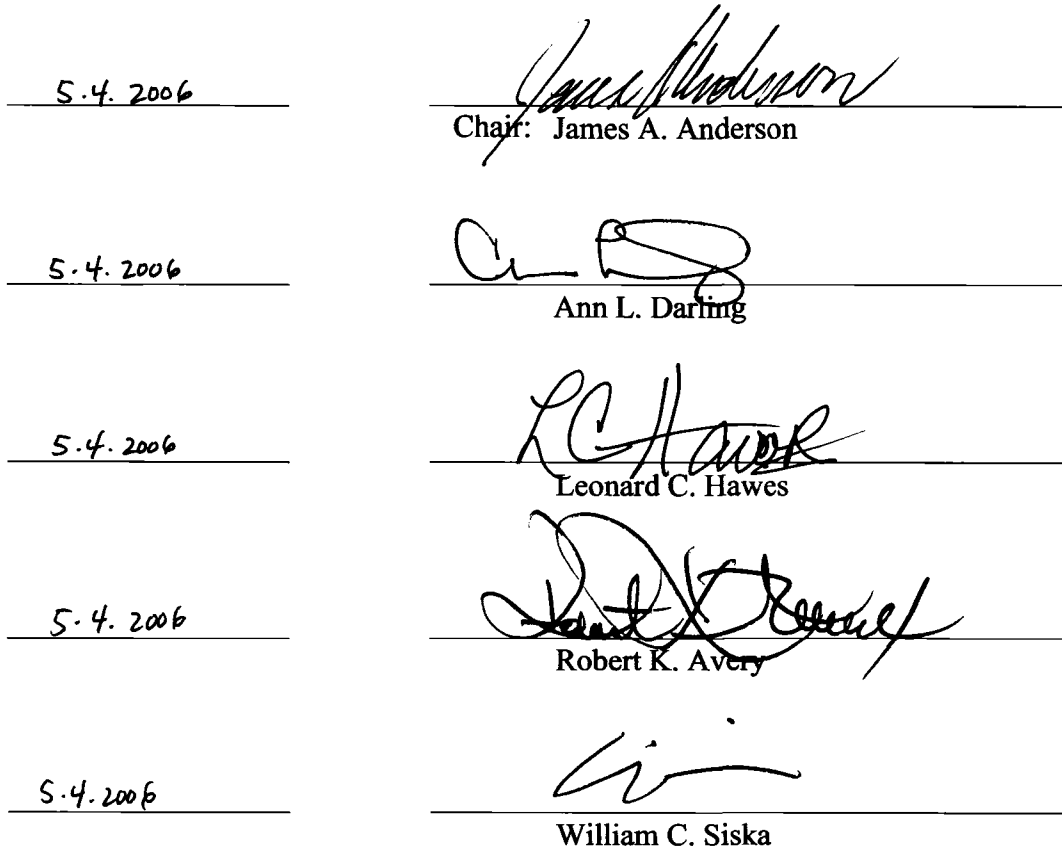 5.4.2006
Chair: James A. Anderson
5.4.2006
Ann L. Darling
5.4.2006
L C Hawes
Leonard C. Hawes
5.4.2006
Robert K. Avery
5.4.2006
William C. Siska